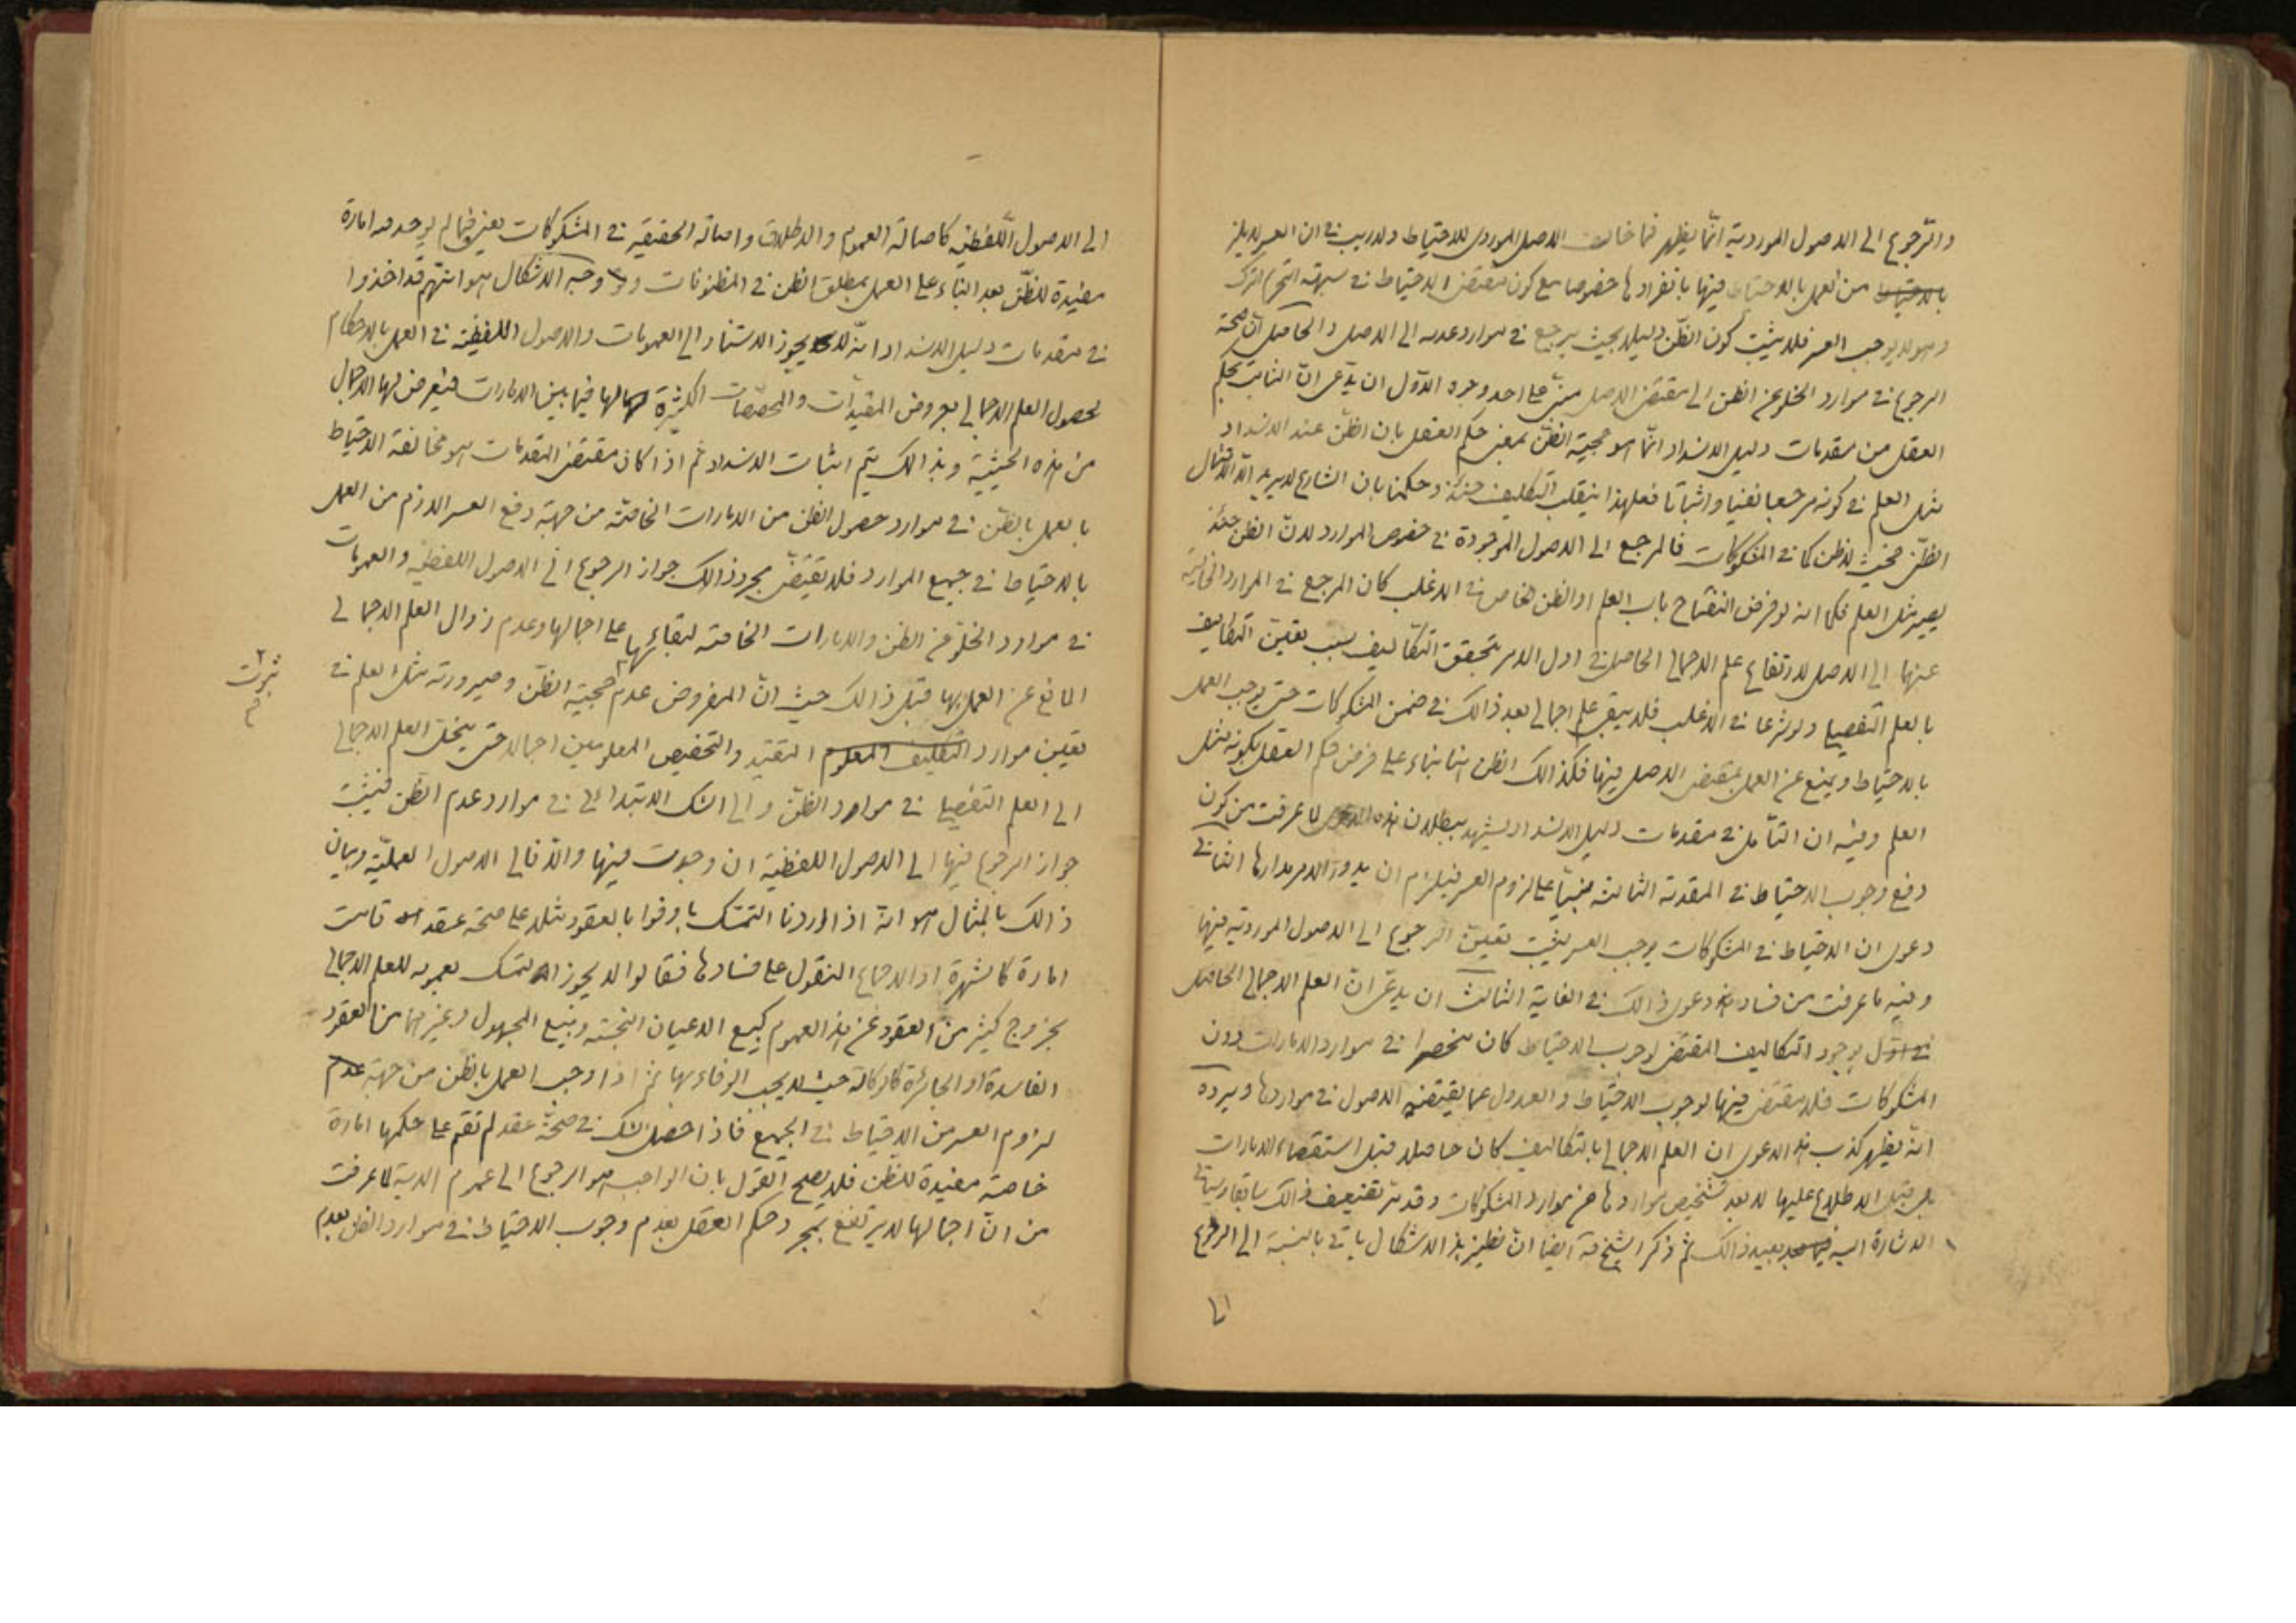 والرجوع الى الاصول الموردية انما يظهر فيما خالف الاصل الموردى للاحتياط ولا ريب فى ان العسر لا يلزم
من العمل بالاحتياط فيها بانفرادها خصوصا مع كون مقتضى الاحتياط فى شبهة التحريم الترك
وهو لا يوجب العسر فلا يثبت كون الظن دليلا بحيث يرجع فى موارد عدمه الى الاصل والحاصل ان صحة
الرجوع فى موارد الخلو عن الظن الى مقتضى الاصل مبنى على احد وجوه الاول ان يدعى ان الثابت بحكم
العقل من مقدمات دليل الانسداد انما هو حجية الظن بمعنى حكم العقل بان الظن عند الانسداد
مثل العلم فى كونه مرجعا نفيا واثباتا فعلى هذا ينقلب التكليف حينئذ وحكمنا بان الشارع لا يريد الا الامتثال
الظنى فحيث لا ظن كما فى المشكوكات فالمرجع الى الاصول الموجودة فى خصوص الموارد لان الظن حينئذ
يصير مثل العلم فكما انه لو فرض انفتاح باب العلم او الظن الخاص فى الاغلب كان المرجع فى الموارد الخالية
عنها الى الاصل لارتفاع علم الاجمالى الحاصل فى اول الامر بتحقق التكاليف بسبب تعيين التكاليف
بالعلم التفصيلى ولو شرعا فى الاغلب فلا يبقى علم اجمالى بعد ذالك فى ضمن المشكوكات حتى يوجب العمل
بالاحتياط ويمنع عن العمل بمقتضى الاصل فيها فكذالك الظن ايضا بناء على فرض حكم العقل بكونه مثل
العلم وفيه ان التأمل فى مقدمات دليل الانسداد يشهد ببطلان هذه الدعوى لما عرفت من كون
دفع وجوب الاحتياط فى المقدمة الثالثة مبنيا على لزوم العسر فيلزم ان يدور الامر مدارها الثانى
دعوى ان الاحتياط فى المشكوكات يوجب العسر يثبت تعيين الرجوع الى الاصول الموردية فيها
وفيه ما عرفت من فساد دعوى ذالك فى الغاية الثالث ان يدعى ان العلم الاجمالى الحاصل
بوجود التكاليف المقتضى لوجوب الاحتياط كان منحصرا فى موارد الامارات دون
المشكوكات فلا مقتضى فيها لوجوب الاحتياط والعدول عما يقتضيه الاصول فى مواردها ويرده
انه يظهر كذب هذه الدعوى ان العلم الاجمالى بالتكاليف كان حاصلا قبل استقصاء الامارات
بل قبل الاطلاع عليها لا بعد تشخيص مواردها عن موارد المشكوكات وقد مر تضعيف ذالك سابقا وسيأتى
الاشارة اليه بعيد ذالك ثم ذكر الشيخ قه ايضا ان نظير هذا الاشكال يأتى بالنسبة الى الرجوع
الى الاصول اللفظية كاصالة العموم والاطلاق واصالة الحقيقة فى المشكوكات يعنى فيما لم يوجد مه امارة
مفيدة للظن بعد البناء على العمل بمطلق الظن فى المظنونات ووجه الاشكال هو انتهم قد اخذوا
فى مقدمات دليل الانسداد انه لا يجوز الاستناد الى العمومات والاصول اللفظية فى العمل بالاحكام
لحصول العلم الاجمالى بعروض المقيدات والمخصصات الكثيرة لها فيما بين الامارات فيعرض لها الاجمال
من هذه الحيثية وبذالك يتم اثبات الانسداد ثم اذا كان مقتضى المقدمات هو مخالفة الاحتياط
بالعمل بالظن فى موارد حصول الظن من الامارات الخاصة من جهة دفع العسر اللازم من العمل
بالاحتياط فى جميع الموارد فلا يقتضى مجرد ذالك جواز الرجوع الى الاصول اللفظية والعمومات
فى موارد الخلو عن الظن والامارات الخاصة لبقائها على اجمالها وعدم زوال العلم الاجمالى
المانع عن العمل بها قبل ذالك حيث ان المفروض عدم حجية الظن وصيرورته مثل العلم فى
ثبوت
تعيين موارد التكليف المعلوم التقييد والتخصيص المعلومين اجمالا حتى ينحل العلم الاجمالى
الى العلم التفصيلى فى موارد الظن والى الشك الابتدائى فى موارد عدم الظن فيثبت
جواز الرجوع فيها الى الاصول اللفظية ان وجدت فيها والا فالى الاصول العملية وبيان
ذالك بالمثال هو انه اذا اردنا التمسك باوفوا بالعقود مثلا على صحة عقد قامت
امارة كالشهرة او الاجماع المنقول على فسادها فقالوا لا يجوز التمسك بعمومه للعلم الاجمالى
بخروج كثير من العقود عن هذا العموم كبيع الاعيان النجسة وبيع المجهول وغيرهما من العقود
الفاسدة او الجائزة كالوكالة حيث لا يجب الوفاء بها ثم اذا وجب العمل بالظن من جهة عدم
لزوم العسر من الاحتياط فى الجميع فاذا حصل الشك فى صحة عقد لم تقم على حكمها امارة
خاصة مفيدة للظن فلا يصح القول بان الواجب هو الرجوع الى عموم الاية لما عرفت
من ان اجمالها لا يرتفع بمجرد حكم العقل بعدم وجوب الاحتياط فى موارد الظن بعدم